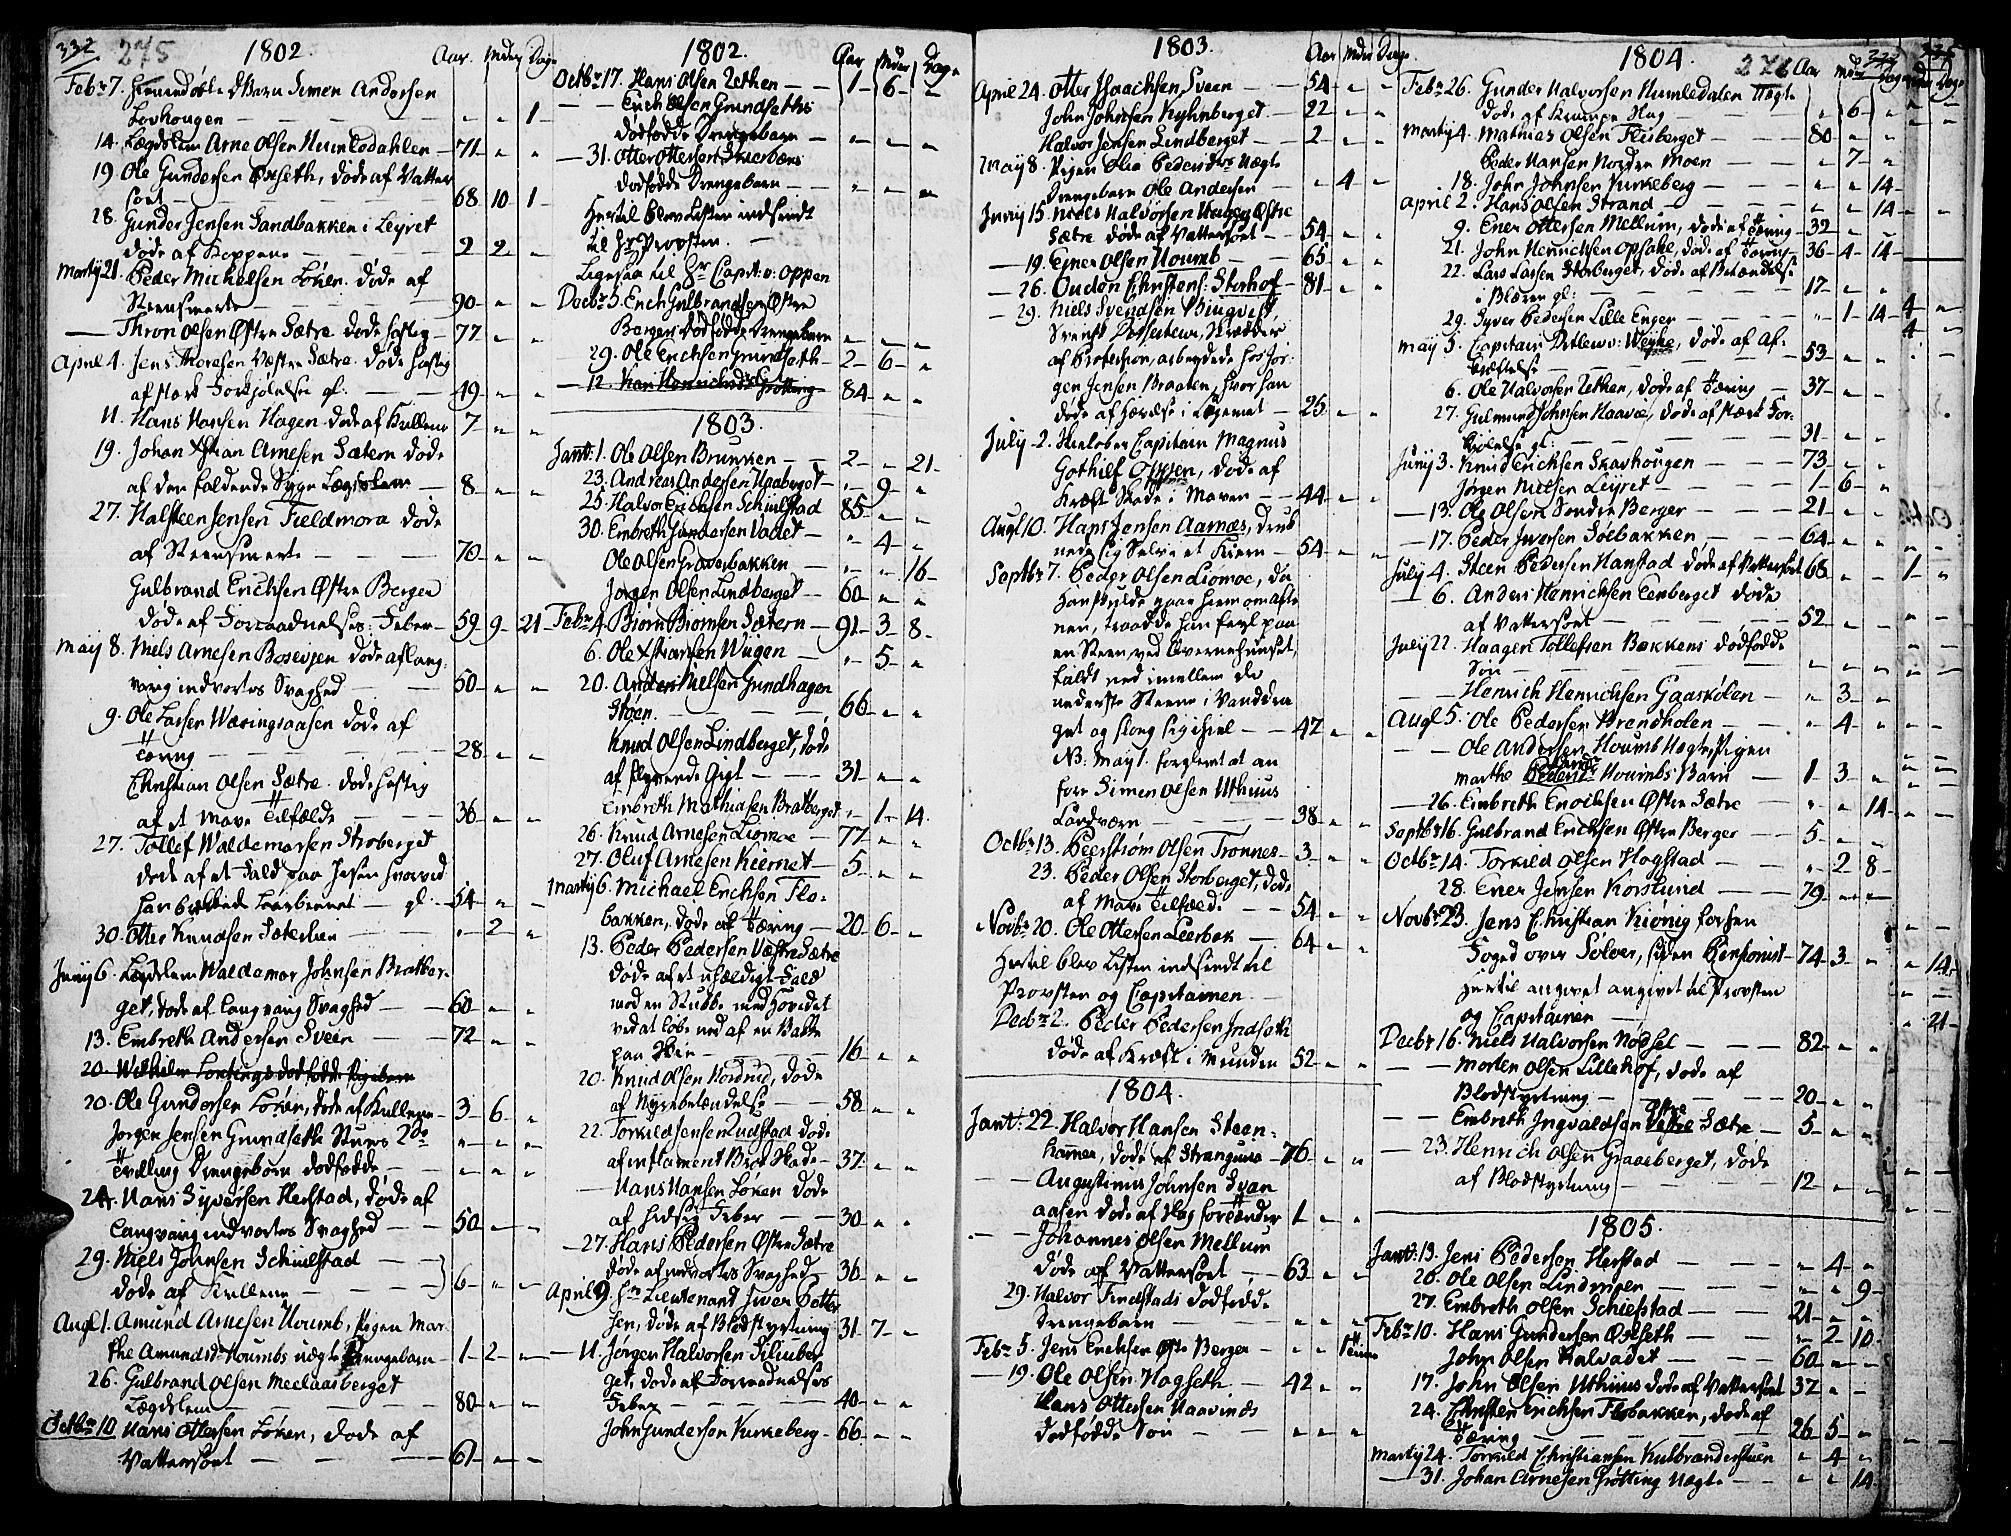 332 275 1802. Aar. Mdr Dage
Febr 7. Hiemedøbte D Barn Simen Andersen
Lovhougen — — — " " 1
14. Lægdslem Arne Olsen Humledahlen — 71 " "
19 Ole Gundersen Ørseth, døde af Vatter
sot — 68 10 1
28. Gunder Jensen Sandbakken i Leyret
døde af Koppene — 2 2 "
Martij 21. Peder Mickelsen Løken. døde af
Steensmerte — 90 " "
— Thron Olsen Østre Sætre døde hastig — 77 " "
April 4. Jens Thoresen Vestre Sætre. døde hastig
af stærk Forkjølelse gl. — 49 " "
11. Hans Hansen Hagen døde af Kullene 7 " "
19. Johan Xstian Arnesen Sætern døde
af den faldende Syge Lægdslem — 8 " "
27. Halsteen Jensen Fieldmora døde
af Steensmerte — 70 " "
Gulbrand Erichsen Østre Berger
døde af Forraadnelses-Feber — 59 9 21
Maij 8. Niels Arnesen døde af lang-
varig indvortes Svaghed — 50 " "
9. Ole Larsen Væringsaasen døde af
Tæring — 28 " "
Christian Olsen Sætre. døde hastig
af et Mave Tilfælde — 36 " "
27. Tollef Waldemarsen Storberget
døde af et Fald paa Isen hvorved
han brækkede Laarbenet — gl. 54 " "
30. Otter Knudsen Sæterlien — " 2 "
Junij 6. Lægdslem Waldemar Johnsen Bratber-
get, døde af langvarig Svaghed — 60 " "
13. Embreth Andersen Sveen — 72 " "
20. Wilhelm dødfødde Pigebarn
20. Ole Gundersen Løken, døde af Kullene — 3 6 "
Jørgen Jensen Grundseth Stuens 2de " " "
Tvilling Drengebørn dødfødde — " " "
24. Hans Syversen Herstad, døde af
langvarig indvortes Svaghed — 50 " "
29. Niels Johnsen Schiulstad —
døde af Kullene — 6 " "
Augl 1. Amund Arnesen Houmb, Pigen Mar-
the Amundsd. Houmbs uægte Drengebarn — 1 2 "
26. Gulbrand Olsen Meelaasberget
Lægdslem — 80 " "
Octbr 10 Hans Ottersen Løken, døde af
Vattersot — 61 " "
1802. Aar Mdr Dage
Octbr 17. Hans Olsen Lethen — 1 6 "
— Erich Olsen Grundseths
dødfødde Drengebarn — " " "
— 31. Otter Ottersen Skierbæks
dødfødde Drengebarn — " " "
Hertil blev Listen indsendt
til Hr Provsten. —
Ligesaa til Hr Capit: v: Oppen
Decbr 5. Erich Gulbrandsen Østre
Bergers dødfødde Drengebarn " " "
29. Ole Erichsen Grundseth — 2 6 "
— 12. Kari Henrichsdr Grøtting — 84 " "
1803.
Janv: 1. Ole Olsen Brunken — 2 " 21
23. Andreas Andersen Ulvaberget — " 9 "
25. Halvor Erichsen Schiulstad 85 " "
30. Embreth Gundersen Vadet — " 4 "
Ole Olsen Graverbakken — " " 16
Jørgen Olsen Lindberget — 60 " "
Febr 4. Biørn Biørnsen Sætern — 91 3 8
6. Ole Xstiansen Wugen — " 5 "
20. Anders Nielsen Gundhagen
Støen. — 66 " "
Knud Olsen Lindberget, døde
af flyvende Gigt — 31 " "
Embreth Mathiasen Bratberget " 1 14
26. Knud Arnesen Liomoe — 77 " "
27. Oluf Arnesen Kiernet — 5 " "
Martij 6. Michael Erichsen Flo-
bakken, døde af Tæring — 20 6 "
13. Peder Pedersen Væstre Sætre
døde af et uhældigt Fald
mod en Stubbe med Hovedet
ved at løbe ned af en Bakke
paa Skie — 16 " "
20. Knud Olsen Nordrud, døde
af Nyrebetændelse — 58 " "
22. Torkild Jensen Rudstad døde
af inflament Bryst Skade — 37 " "
— Hans Hansen Løken døde
af hidsig Feber — 30 " "
— 27. Hans Pedersen Østre Sætre
døde af indvortes Svaghed 36 " "
April 9. Hr Lieutenant Iver Petter-
sen, døde af Blodstyrtning 31 7 "
— 11. Jørgen Halvorsen Filiuber-
get, døde af Forraadnelses
Feber — 40 " "
John Gundersen Kirkeberg — 66 " "
1803. Aar Mdr Dage
April 24. Otter Isaachsen Sveen — 54 " "
John Johnsen Kyhnberget. — 22 " "
Halvor Jensen Lindberget — 2 " "
May 8. Pigen Olia Pedersdrs Uægte
Drengebarn Ole Andersen — " 4 "
Junij 15. Niels Halvorsen Hagen Østre
Sætre døde af Vattersot — 54 " "
— 19. Ejner Olsen Houmb — 65 " "
— 26. Ouden Christens: Storhof — 81 " "
— 29. Niels Svendsen Bingvist,
Svensk Deserteur, Skredder
af Profession, arbeydede hos Jør-
gen Jensen Braaten, hvor han
døde af Hævelse i Legemet — 25 " "
July 2. Hr Capitain Magnus
Gothilf Oppen, døde af
Kræft Skade i Maven — 44 " "
Augl 10. Hans Jensen Aarnæs, druk-
nede sig Selv i et Kiern — 54 " "
Septbr 7. Peder Olsen Liomoe, da
han skulde gaae hiem om Afte-
nen, traadde han feyl paa
en Steen ved Qvernehuuset,
faldt ned imellem de
nederste Steene i Vanddra-
get og slog sig ihiel — 47 " "
NB: May 1. forglemt at an-
føre Simen Olsen Uthuus
Landværn — 38 " "
Octbr 13. Peerstrøm Olsen Trønnes — 3 " "
23. Peder Olsen Storberget, døde
af Mave Tilfælde — 54 " "
Novbr 20. Ole Ottersen Leerbek — 64 " "
Hertil blev Listen indsendt til
Provsten og Capitainen —
Decbr 2. Peder Pedersen Indseth
døde af Kræft i Munden 52 " "
1804.
Janv: 22. Halvor Hansen Steen-
hamer, døde af Stranguria — 76 " "
— Augustinus Johnsen Svan-
aasen døde af Slag for Tænder 1 " "
— Johannes Olsen Mellum
døde af Vattersot — 63 " "
29. Halvor Findstads dødfødde
Drengebarn — " " "
Febr 5. Jens Erichsen Øste Berger — " " 1 Time
— 19. Ole Olsen Hagseth. — 42 " "
Hans Ottersen Haavinds
dødfødde Søn — " " "
1804. 276 Aar Mdr Dage
Febr 26. Gunder Halvorsen Humledalen Uægte
døde af Krampe Slag — " 6 "
Martij 4. Mathias Olsen Fliberget — 80 " "
Peder Hansen Nordre Moen — " 7 "
18. John Johnsen Kirkeberg — " " 14
April 2. Hans Olsen Strand — " " 14
9. Ener Ottersen Mellum, døde af Tæring — 32 " "
21. John Henrichsen Opsahl, døde af Tæring — 36 4 14
22. Lars Larsen Storberget, døde af Betændelse
i Blæren gl: — 17 " "
29. Syver Pedersen Lille Enger — " 1 14
May 5. Capitain Detlew v: Weyhe, døde af Af-
kræftelse — 53 " "
6. Ole Halvorsen Lethen, døde af Tæring — 37 " "
27. Gulmund Johnsen Haavæ, døde af stærk For-
kjølelse gl: — 31 " "
Junij 3. Knud Erichsen Skavhougen — 73 " "
Jørgen Nielsen Leyret — 1 6 "
— 13. Ole Olsen Søndre Berger — 21 " "
— 17. Peder Iversen Sølbakken — 64 " "
July 4. Steen Pedersen Hanstad døde af Vattersot 66 " "
— 6. Anders Henrichsen Eenberget døde
af Vattersot — 52 " "
July 22. Haagen Tollefsen Bækkens dødfødde
Søn — " " "
— Henrich Henrichsen Gaaskølen — " 3 "
Augl 5. Ole Pedersen Brændholen — " 4 "
— Ole Andersen Houmb Uægte, Pigen
Marthe Amunds. Houmbs Barn — 1 3 "
— 26. Embreth Enochsen Østre Sætre — " " 14
Septbr 16. Gulbrand Erichsen Østre Berger — 5 " "
Octbr 14. Torkild Olsen Hogstad — " 2 8
28. Ener Jensen Korslund — 79 " "
Novbr 23. Jens Christian Kiønig forhen
Foged over Soløer, siden Pensionist — 74 3 "
Hertil angivet angivet til Provsten
og Capitainen —
Decbr 16. Niels Halvorsen Nødset — 82 " "
— Morten Olsen Lillehof, døde af
Blodstyrtning — 20 " "
— Embreth Ingvaldsen Østre Sætre — 5 " "
— 23. Henrich Olsen Graaberget, døde
af Blodstyrtning — 12 " "
1805.
Janv: 13. Jens Pedersen Herstad — " 4 "
20. Ole Olsen Lindmoen — " " 9
27. Embreth Olsen Schiefstad — 21 " "
Febr 10. Hans Gundersen Ørseth — " 2 10
John Olsen Kalvadet — 60 " "
17. John Olsen Uthuus døde af Vattersot 37 " "
24. Christen Erichsen Flobakken, døde af
Tæring — 26 5 "
Martij 24. Torkild Christiansen Kulbrænderstuen " 4 "
— 31. Johan Arnesen Grøtting Uægte — " " 14